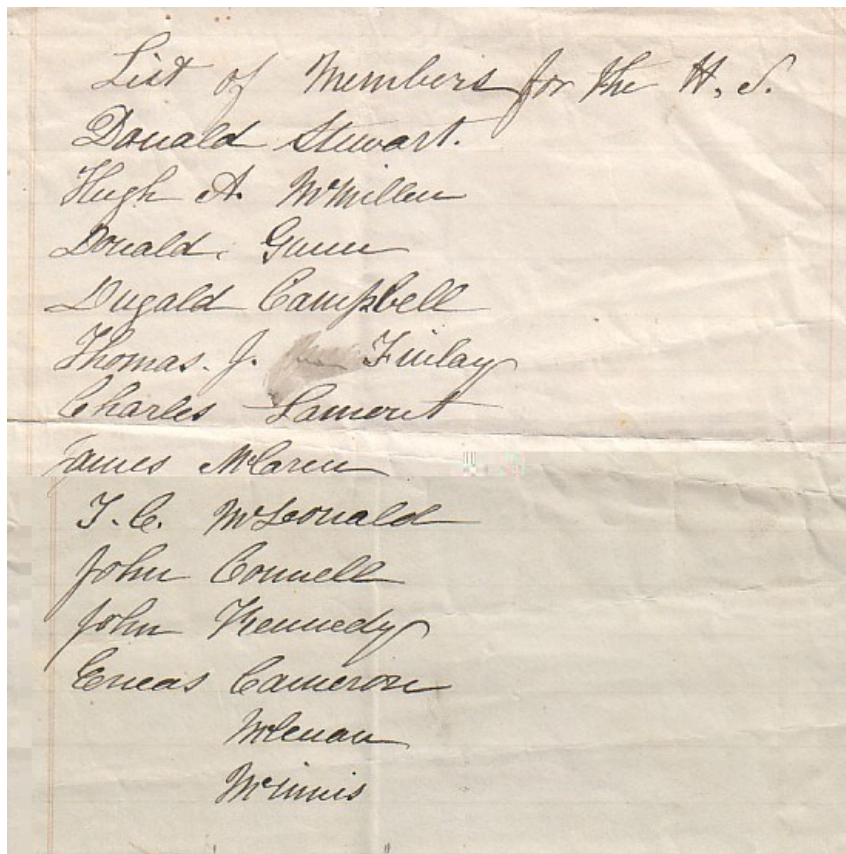 List of Members for the H. S.
Donald Stewart.
Hugh A. McMillen
Donald. Gunn
Dugald Campbell
Thomas. J. Finlay
Charles Lamont
James McLaren
J. C. McDonald
John Connell
John Kennedy
Eneas Cameron
McLenan
McInnis